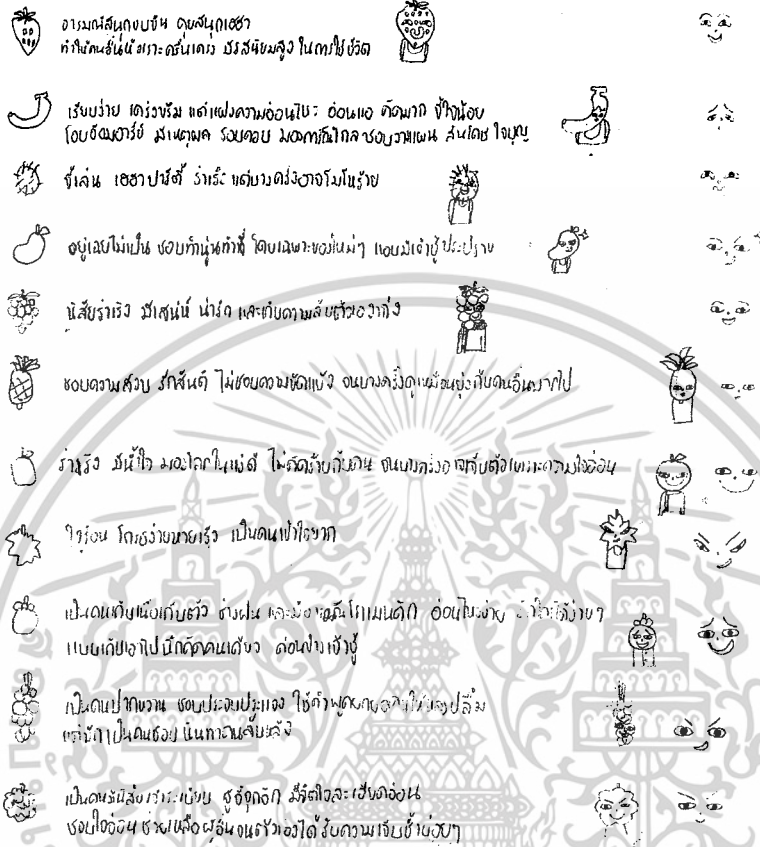 อารมณ์สนุกขบขัน คุยสนุกเฮฮา
ทำให้คนอื่นหัวเราะครื้นเครง มีรสนิยมสูง ในการใช้ชีวิต
เรียบง่าย เคร่งขรึม แต่แฝงความอ่อนไหว อ่อนแอ คิดมาก ขี้ใจน้อย
โอบอ้อมอารีย์ มีเหตุผล รอบคอบ มองการณ์ไกล ชอบวางแผน สันโดษ ใจบุญ
ขี้เล่น เฮฮา ปาร์ตี้ ร่าเริง แต่บางครั้งอาจโมโหร้าย
อยู่เฉยไม่เป็น ชอบทำนู่นทำนี่ โดยเฉพาะของใหม่ๆ แอบมีเจ้าชู้ประปราย
นิสัยร่าเริง มีเสน่ห์ น่ารัก และเก็บความลับตัวเองเก่ง
ชอบความสงบ รักสันติ ไม่ชอบความขัดแย้ง จนบางครั้งดูเหมือนยุ่งกับคนอื่นมากไป
ร่าเริง มีน้ำใจ มองโลกในแง่ดี ไม่คิดร้ายกับใคร จนบางครั้งอาจเจ็บตัวเพราะความใจอ่อน
ใจร้อน โกรธง่ายหายเร็ว เป็นคนเข้าใจยาก
เป็นคนเก็บเนื้อเก็บตัว ช่างฝัน และมีอารมณ์โรแมนติก อ่อนไหวง่าย ง่ายๆ
แบบเก็บเอาไปนึกคิดคนเดียว ค่อนข้างเจ้าชู้
เป็นคนปากหวาน ชอบประจบประแจง ใช้คำพูด ปลื้ม
เป็นคนชอบนินทาคนลับหลัง
เป็นคนมีนิสัยเจ้าระเบียบ จู้จี้จุกจิก มีจิตใจละเอียดอ่อน
ชอบใจอ่อน ช่วยเหลือผู้อื่น จนตัวเองได้รับความเจ็บช้ำบ่อยๆ